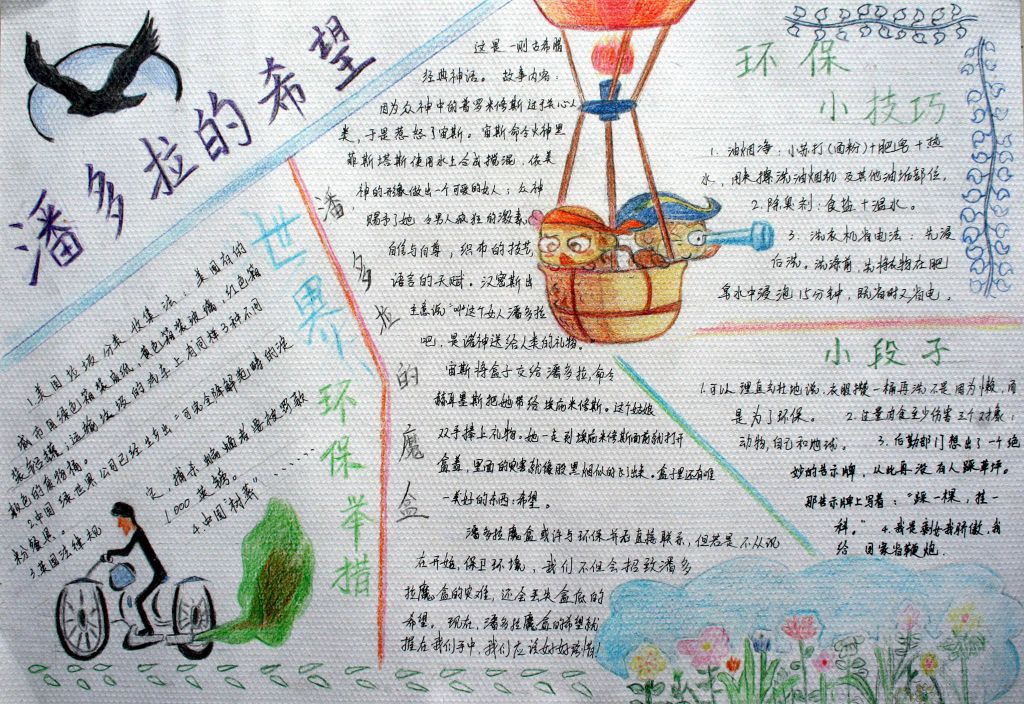 潘多拉的希望
世界环保举措
1.美国垃圾分类收集法：美国有的
城市用绿色箱装废纸，黄色箱装玻璃，红色箱
装轻罐，运输垃圾的汽车上有同样3种不同
颜色的废物桶。
2.中国绿世界公司已经生产出"可完全降解泡
粉餐具。
3.英国法律规
定，捕杀蝙蝠者将被罚款
1000英镑。
4.中国"树葬"
潘多拉的魔盒
这是一则古希腊
经典神话。故事内容：
因为众神中的普罗米修斯过于关心人
类，于是惹怒了宙斯。宙斯命令火神黑
菲斯塔斯使用水土合成搅混，依美
神的形像做出一个可爱的女人；众神
赐予了她令男人疯狂的激素。
自信与自尊，织布的技艺
语言的天赋。汉密斯出
主意说"叫这个女人潘多拉
吧，是诸神送给人类的礼物。"
宙斯将盒子交给潘多拉，命令
赫耳墨斯把她带给埃庇米修斯。这个姑娘
双手捧上礼物。她一走到埃庇米修斯面前就打开
盒盖，里面的灾害就像股黑烟似的飞出来。盒子里还有唯
一美好的东西：希望。
潘多拉魔盒或许与环保并无直接联系，但若是不从现
在开始，保卫环境，我们不但会招致潘多
拉魔盒的灾难，还会丢失盒底的
希望。现在，潘多拉魔盒的希望就
握在我们手中，我们应该好好珍惜！
环保
小技巧
1.油烟净：小苏打(面粉)+肥皂+热
水，用来擦洗油烟机及其他油垢部位。
2.除臭剂：食盐+温水。
3.洗衣机省电法：先浸
后洗。洗涤前，先将衣物在肥
皂水中浸泡15分钟，既省时又省电。
小段子
1.可以理直气壮地说：衣服攒一桶再洗不是因为懒，而
是为了环保。 2.过量肉食至少伤害三个对象：
动物，自己和地球。 3.后勤部门想出了一个绝
妙的告示牌，从此再没有人踩草坪。
那告示牌上写着："踩一棵，挂一
科。" 4.我是剩女我骄傲，我
给国家省鞭炮.